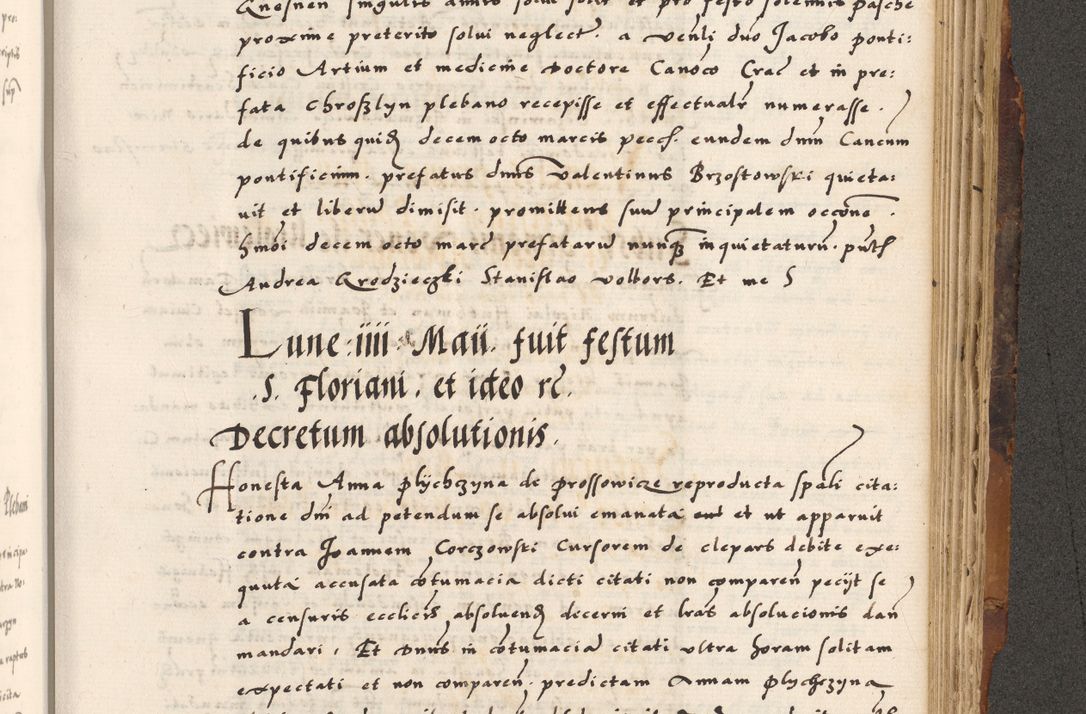 Quesnen singulis annis solui solit et pro festo solemnis pasche
proxime preterito solui neglect. a venli duo Jacobo ponti:
ficio Artium et medicine Doctore Canoco Crac et in pre:
fata Chroslyn plebano recepisse et effectualr numerasse.
de quibus quid decem octo marcis pecch. eundem dnm Canum
pontificium. prefatus dnus Valentinus Brzostowski quieta:
uit et liberu dimisit. promittens suu principalem occone.
hmoi decem octo marc prefataru nunq inquietaturu. pntl
Andrea Grodzieczki Stanislao Volbors. Et me S
Lune .iiii. Maii. fuit festum
.S. Floriani. et ideo rc.
Decretum absolutionis.
Honesta Anna Plychczyna de Prossowicze reproducta spali cita:
tione dni ad petendum se absolui emanata et ut apparuit
contra Joannem Corczowski Cursorem de clepars debite exe:
quuta accusata cotumacia dicti citati non comparen peciit se
a censuris ecclicis absoluend decerni et lras absolucionis dan
mandari, Et Dnus in cotumacia citati ultra horam solitam
expectati et non comparen. predictam Annam Plychczyna